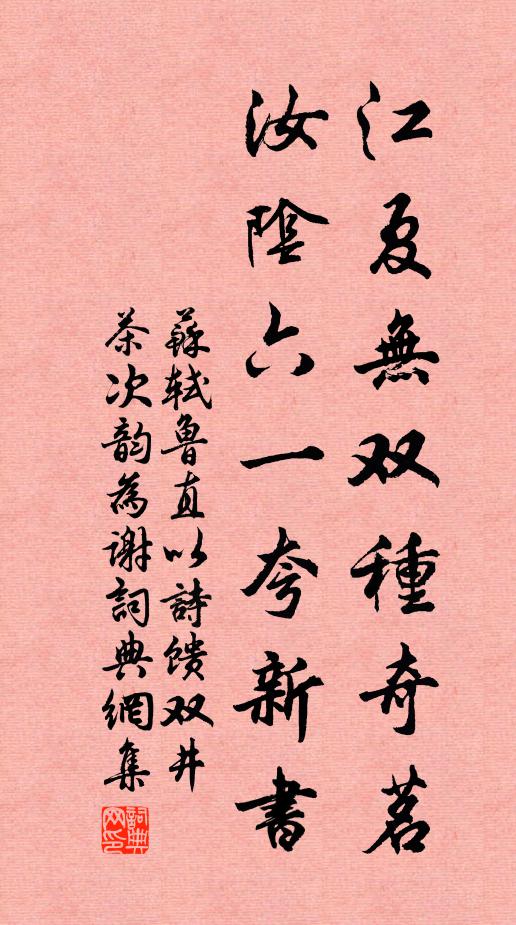 江夏無双種奇茗
汝陰六一夸新書
蘇軾魯直以詩馈双井
茶次韵為谢詞典網集
詞典
网印